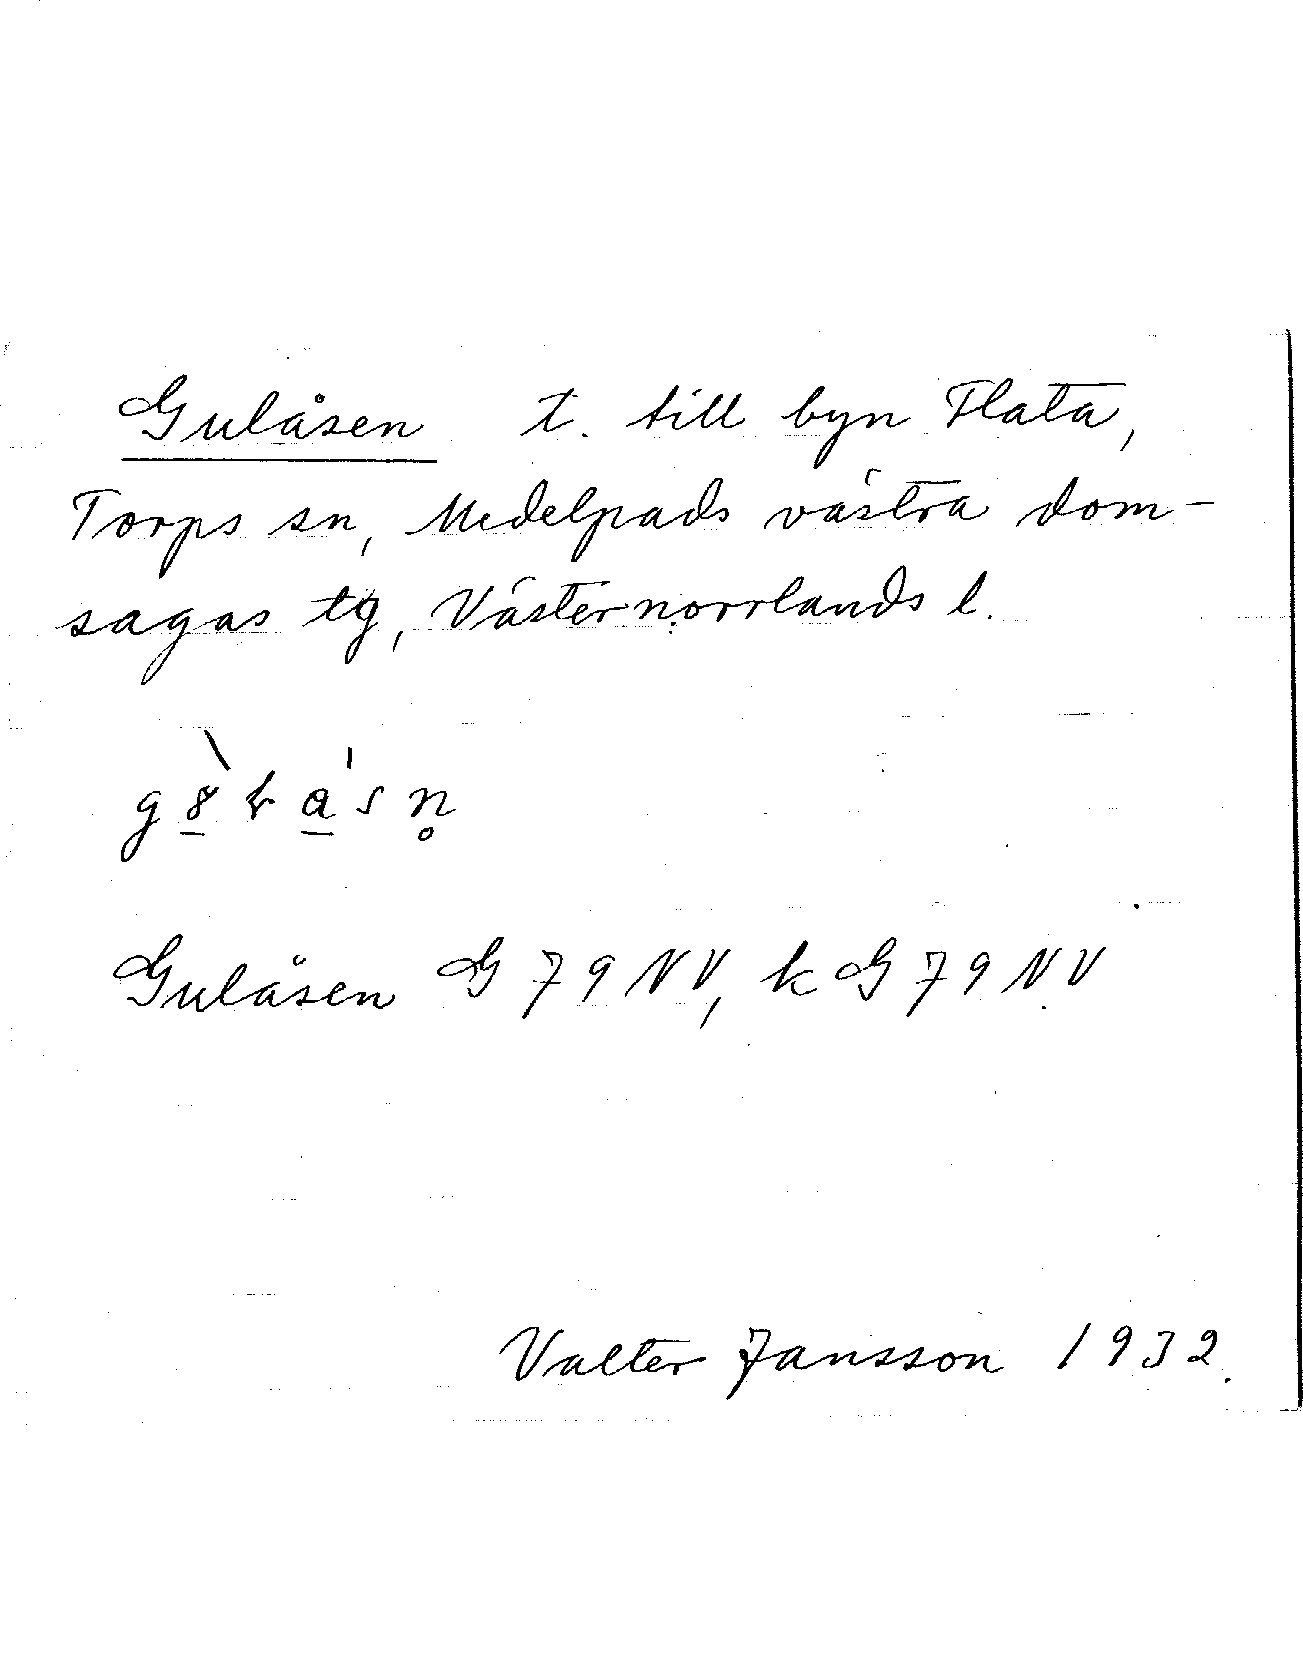 Gulåsen t. till byn Flata,
Torps sn, Medelpads västra dom-
sagas tg, Västernorrlands l.
Gulåsen G 79 NV, k G 79 NV
Valter Jansson 1932.